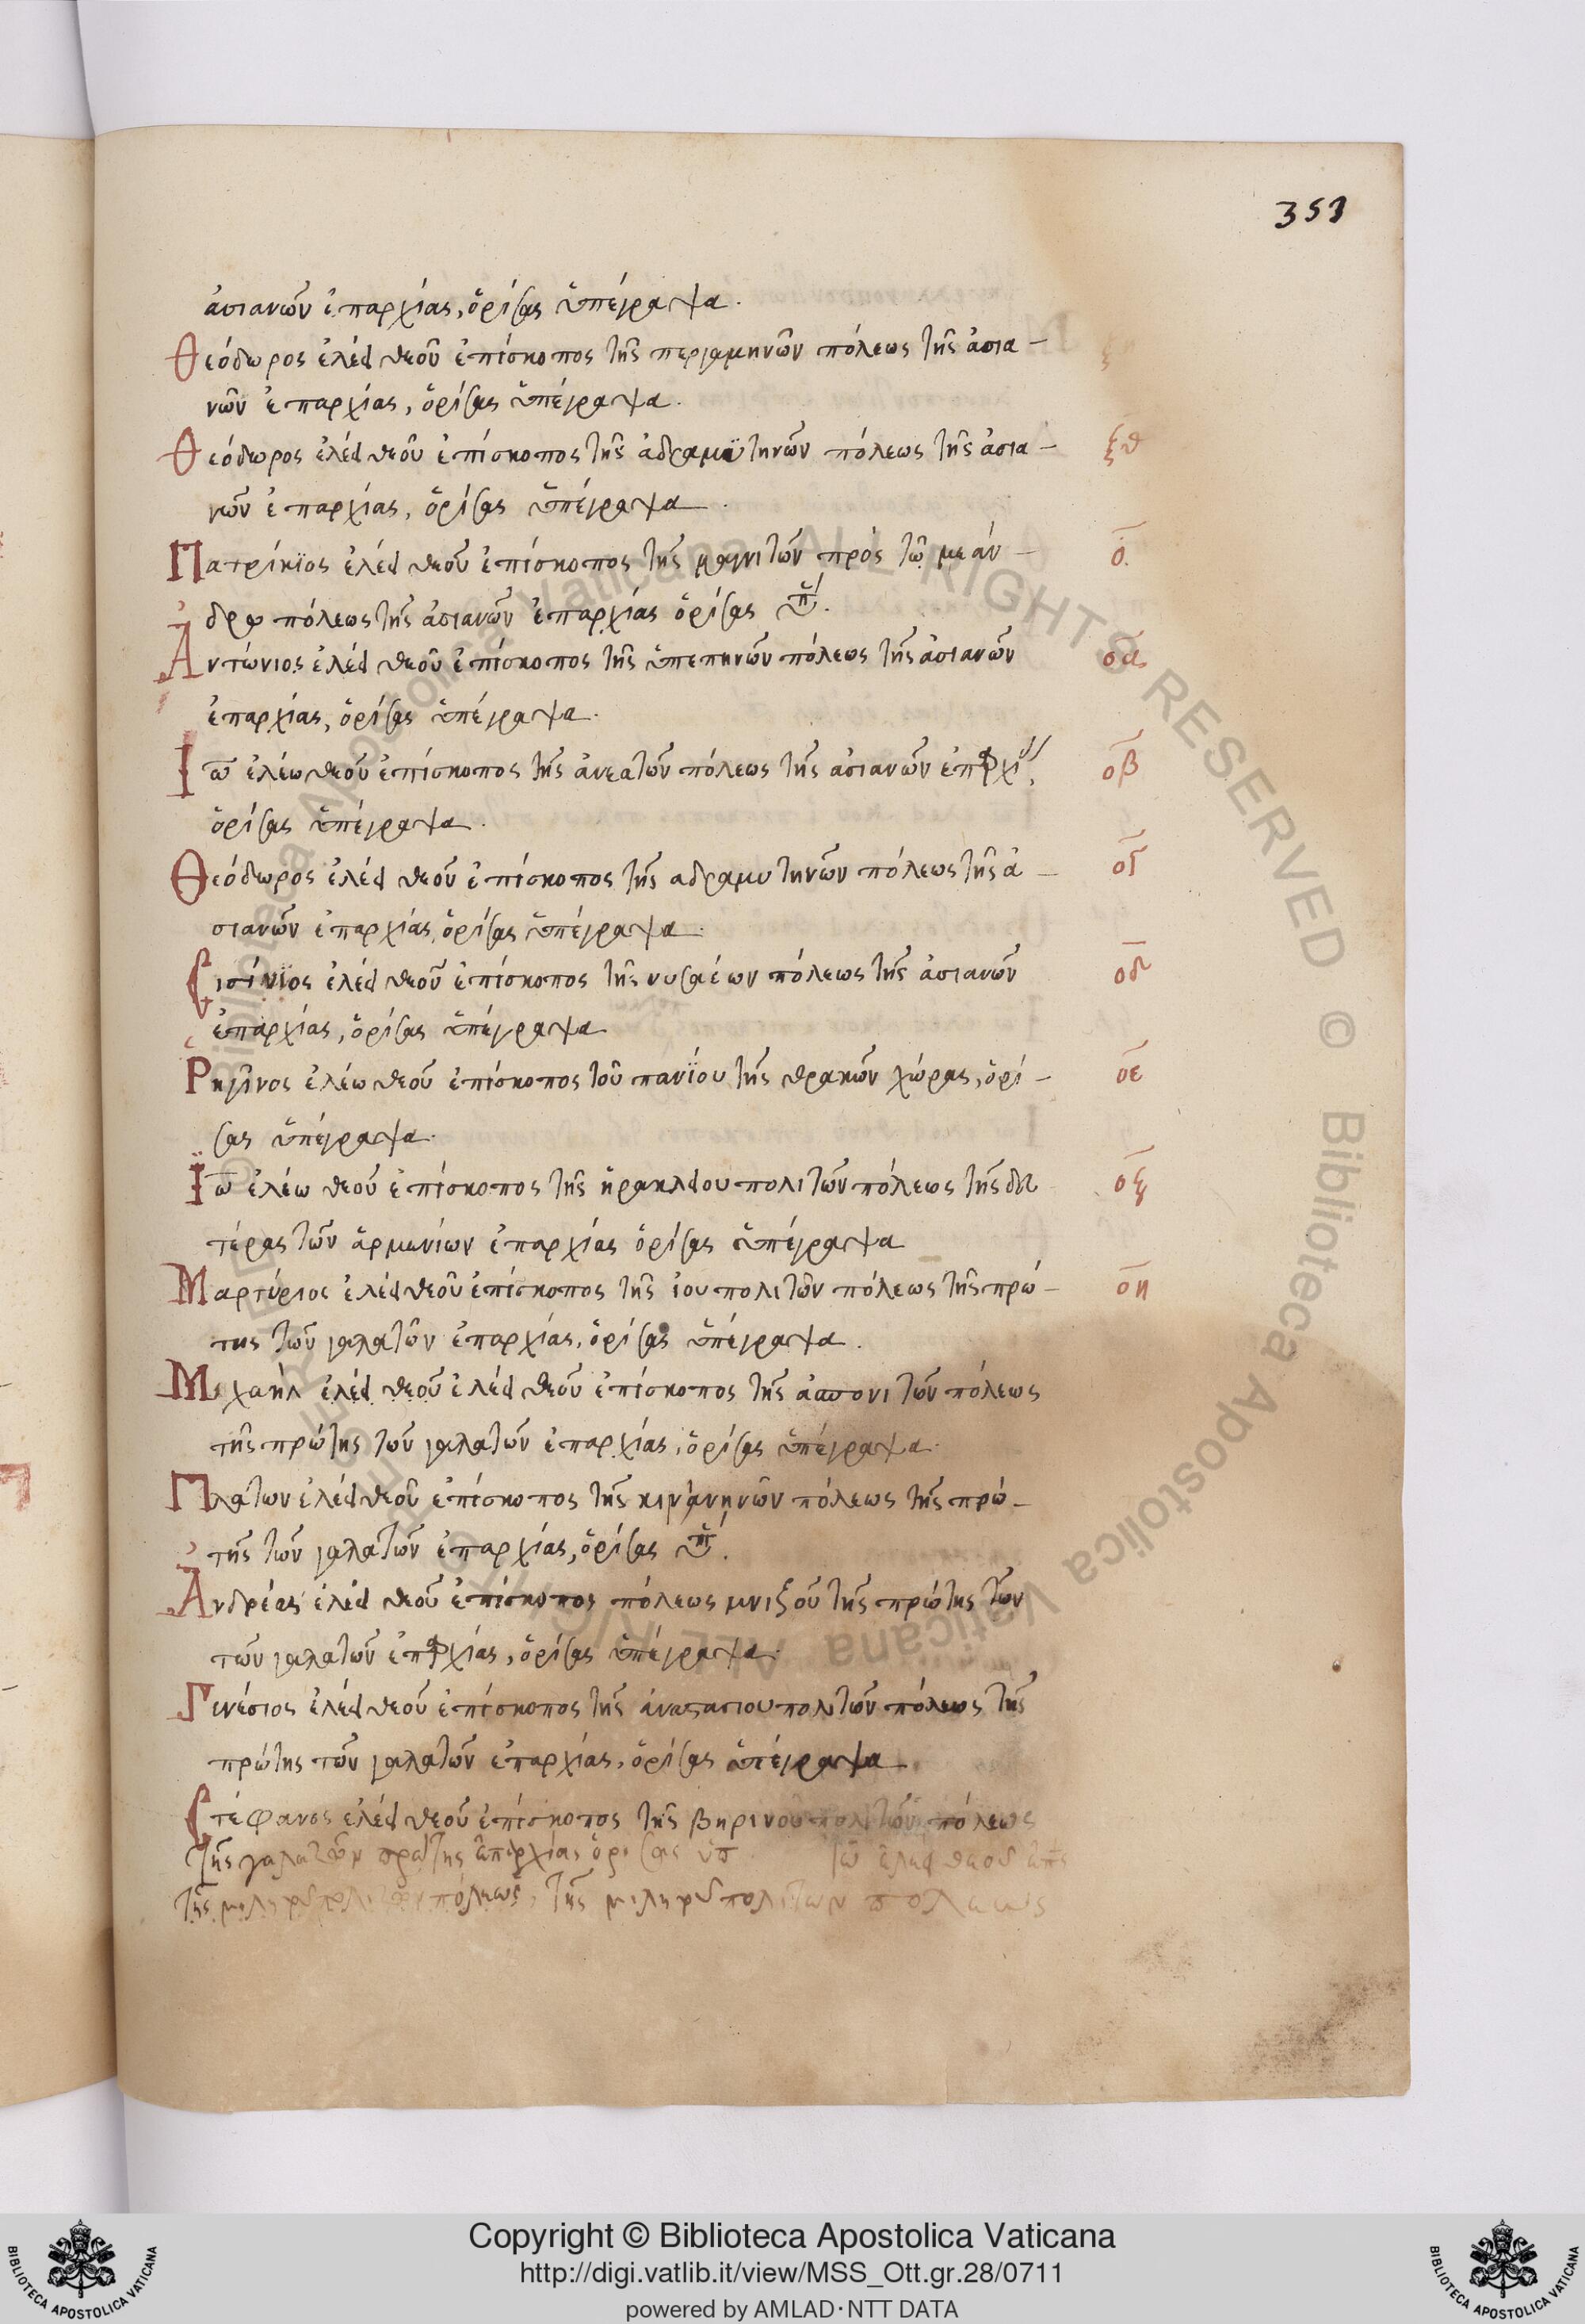 351
ἀσιανῶν ἐπαρχίας, ὁρίσας ὑπέγραψα.
Θεόδωρος ἐλέει θεοῦ ἐπίσκοπος τῆς περγαμηνῶν πόλεως τῆς ἀσια-
νῶν ἐπαρχίας, ὁρίσας ὑπέγραψα.
Θεόδωρος ἐλέει θεοῦ ἐπίσκοπος τῆς ἀδραμυτηνῶν πόλεως τῆς ἀσια- ξθ
νῶν ἐπαρχίας, ὁρίσας ὑπέγραψα.
Πατρίκϊος ἐλέει θεοῦ ἐπίσκοπος τῆς μαγνιτῶν πρὸς τῶ μεάν- ο.
δρω πόλεως τῆς ἀσιανῶν ἐπαρχίας ὁρίσας ὑπ.
Ἀντώνιος ἐλέει θεοῦ ἐπίσκοπος τῆς ὑπεπηνῶν πόλεως τῆς ἀσιανῶν οα
ἐπαρχίας, ὁρίσας ὑπέγραψα.
Ιω ἐλέω θεοῦ ἐπίσκοπος τῆς ἀνεατῶν πόλεως τῆς ἀσιανῶν ἐπαρχι, οβ
ὁρίσας ὑπέγραψα.
Θεόδωρος ἐλέει θεοῦ ἐπίσκοπος τῆς αδραμυτηνῶν πόλεως τῆς ἀ- ογ
σιανῶν ἐπαρχίας, ὁρίσας ὑπέγραψα.
Σισίνϊος ἐλέει θεοῦ ἐπίσκοπος τῆς νυσαέων πόλεως τῆς ἀσιανῶν οδ
ἐπαρχίας, ὁρίσας ὑπέγραψα
Ῥηγῖνος ἐλέω θεοῦ ἐπίσκοπος τοῦ πανΐου τῆς θρακῶν χώρας, ὁρί- οε
σας ὑπέγραψα.
Ϊω ἐλέω θεοῦ ἐπίσκοπος τῆς ἡρακλείου πολιτῶν πόλεως τῆς δευ οϛ
τέρας τῶν ἀρμενίων ἐπαρχίας ὁρίσας ὑπέγραψα
Μαρτύριος ἐλέει θεοῦ ἐπίσκοπος τῆς ἰουπολιτῶν πόλεως τῆς πρώ- οη
της τῶν γαλατῶν ἐπαρχίας, ὁρίσας ὑπέγραψα.
Μιχαὴλ ἐλέει θεοῦ ἐλέει θεοῦ ἐπίσκοπος τῆς πόλεως
τῆς πρώτης τῶν γαλατῶν ἐπαρχίας, ὁρίσας ὑπέγραψα.
Πλάτων ἐλέει θεοῦ ἐπίσκοπος τῆς κινανηνῶν πόλεως τῆς πρώ-
της τῶν γαλατῶν ἐπαρχίας, ὁρίσας ὑπ.
Ἀνδρέας ἐλέει θεοῦ ἐπίσκοπος πόλεως μνιζοῦ τῆς πρώτης τῶν
τῶν γαλατῶν ἐπαρχίας, ὁρίσας ὑπέγραψα.
Γενέσιος ἐλέει θεοῦ ἐπίσκοπος τῆς ἀναστασιουπολιτῶν πόλεως τῆς
πρώτης τῶν γαλατῶν ἐπαρχίας, ὁρίσας ὑπέγραψα
Στέφανος ἐλέει θεοῦ ἐπίσκοπος τῆς βηρινουπολιτῶν πόλεως
τῆς γαλατῶν πρώτης ἐπαρχίας ὁρίσας ὑπ Ιω ἐλέει θεοῦ ἐπ
πόλεως, τῆς πόλεως
Copyright © Biblioteca Apostolica Vaticana
http://digi.vatlib.it/view/MSS_Ott.gr.28/0711
powered by AMLAD·NTT DATA